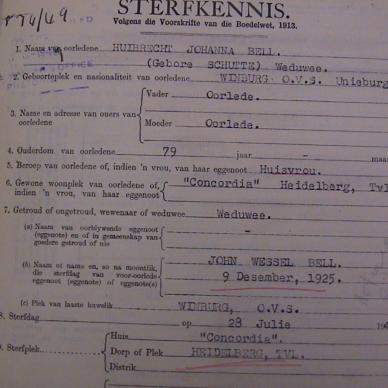 P 74/49
STERFKENNIS.
Volgens die Voorskrifte van die Boedelwet, 1913.
1. Naam van oorledene HUIBRECHT JOHANNA BELL.
(Gebore SCHUTTE) Weduwee.
2. Geboorteplek en nasionaliteit van oorledene WINBURG O.V.S. Unieburg
3. Name en adresse van ouers van oorledene
Vader Oorlede.
Moeder Oorlede.
4. Ouderdom van oorledene 79 jaar - maa
5. Beroep van oorledene of, indien 'n vrou, van haar eggenoot Huisvrou.
6. Gewone woonplek van oorledene of, indien 'n vrou, van haar eggenoot "Concordia" Heidelberg, Tvl
7. Getroud of ongetroud, wewenaar of weduwee Weduwee.
(a) Naam van oorblywende eggenoot (eggenote) en of in gemeenskap van goedere getroud of nie -
(b) Naam of name en, so na moontlik, die sterfdag van voor-oorlede eggenoot (eggenote) of eggenote(s)
JOHN WESSEL BELL.
9 Desember, 1925.
(c) Plek van laaste huwelik WINBURG, O.V.S.
8. Sterfdag op 28 Julie 19
9. Sterfplek
Huis "Concordia".
Dorp of Plek HEIDELBERG, TVL.
Distrik